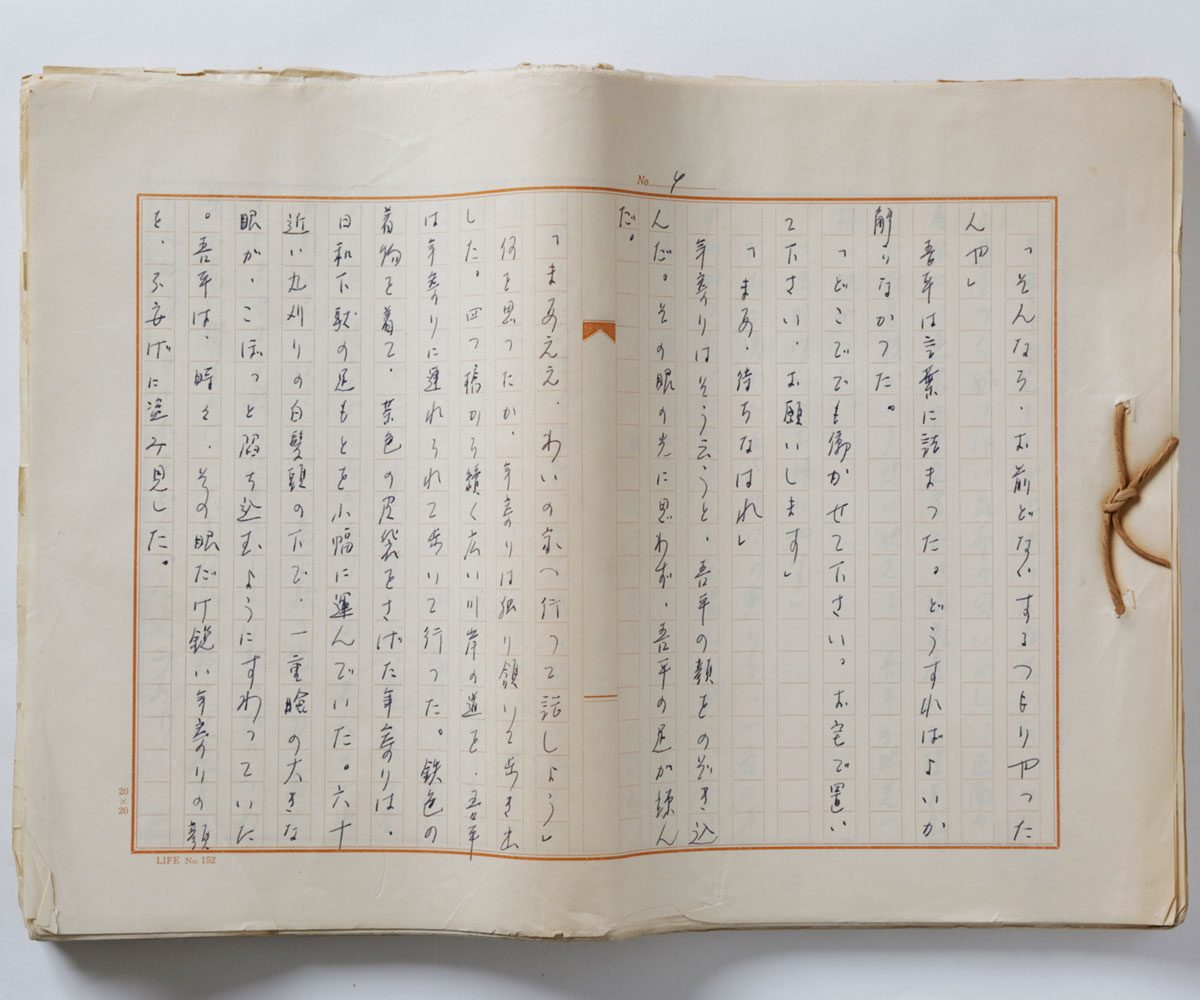 No. 4
「そんなら、お前どないするつもりやった
んや」
吾平は言葉に詰まった。どうすればよいか
解りなかった。
「どこででも働かせて下さい。お宅で置い
て下さい、お願いします」
「まあ、待ちなはれ」
年寄りはそう云うと、吾平の顔をのぞき込
んだ。その眼の光に思わず、吾平の足が竦ん
だ。
「まあええ、わいの家へ行って話しよう」
何を思ったか、年寄りは独り領いて歩き出
した。四つ橋から続く広い川岸の道を、吾平
は年寄りに連れられて歩いて行った。鉄色の
着物を着て、茶色の皮袋をさげた年寄りは、
日和下駄の足もとを小幅に運んでいた。六十
近い丸刈りの白髪頭の下で、一重瞼の大きな
眼が、こぼっと陥ち込むようにすわっていた
。吾平は、時々、その眼だけ鋭い年寄りの顔
を、不安げに盗み見した。
20×20
LIFE No. 152